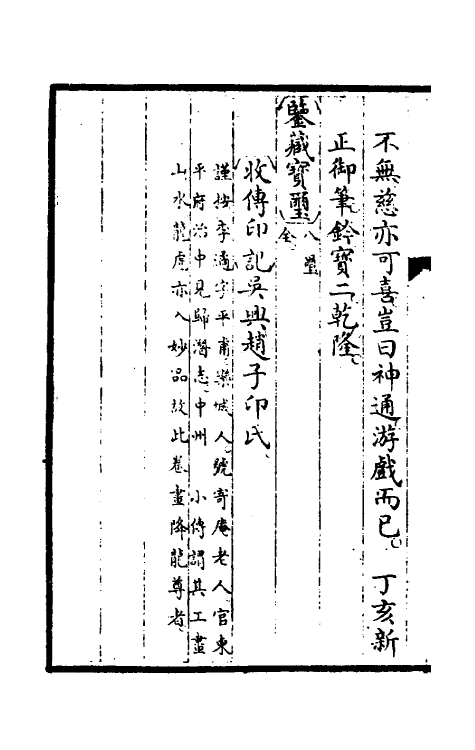 不無慈亦可喜豈曰神通游戲而已　丁亥新
正御筆鈐寶二乾隆
鑒藏寶璽八璽
全
收傳印記吳興趙子印氏
謹按李遹字平甫欒城人號寄庵老人官東
平府治中見歸潛志中州　小傳謂其工畫
山水龍虎亦入妙品故此卷畫降龍尊者